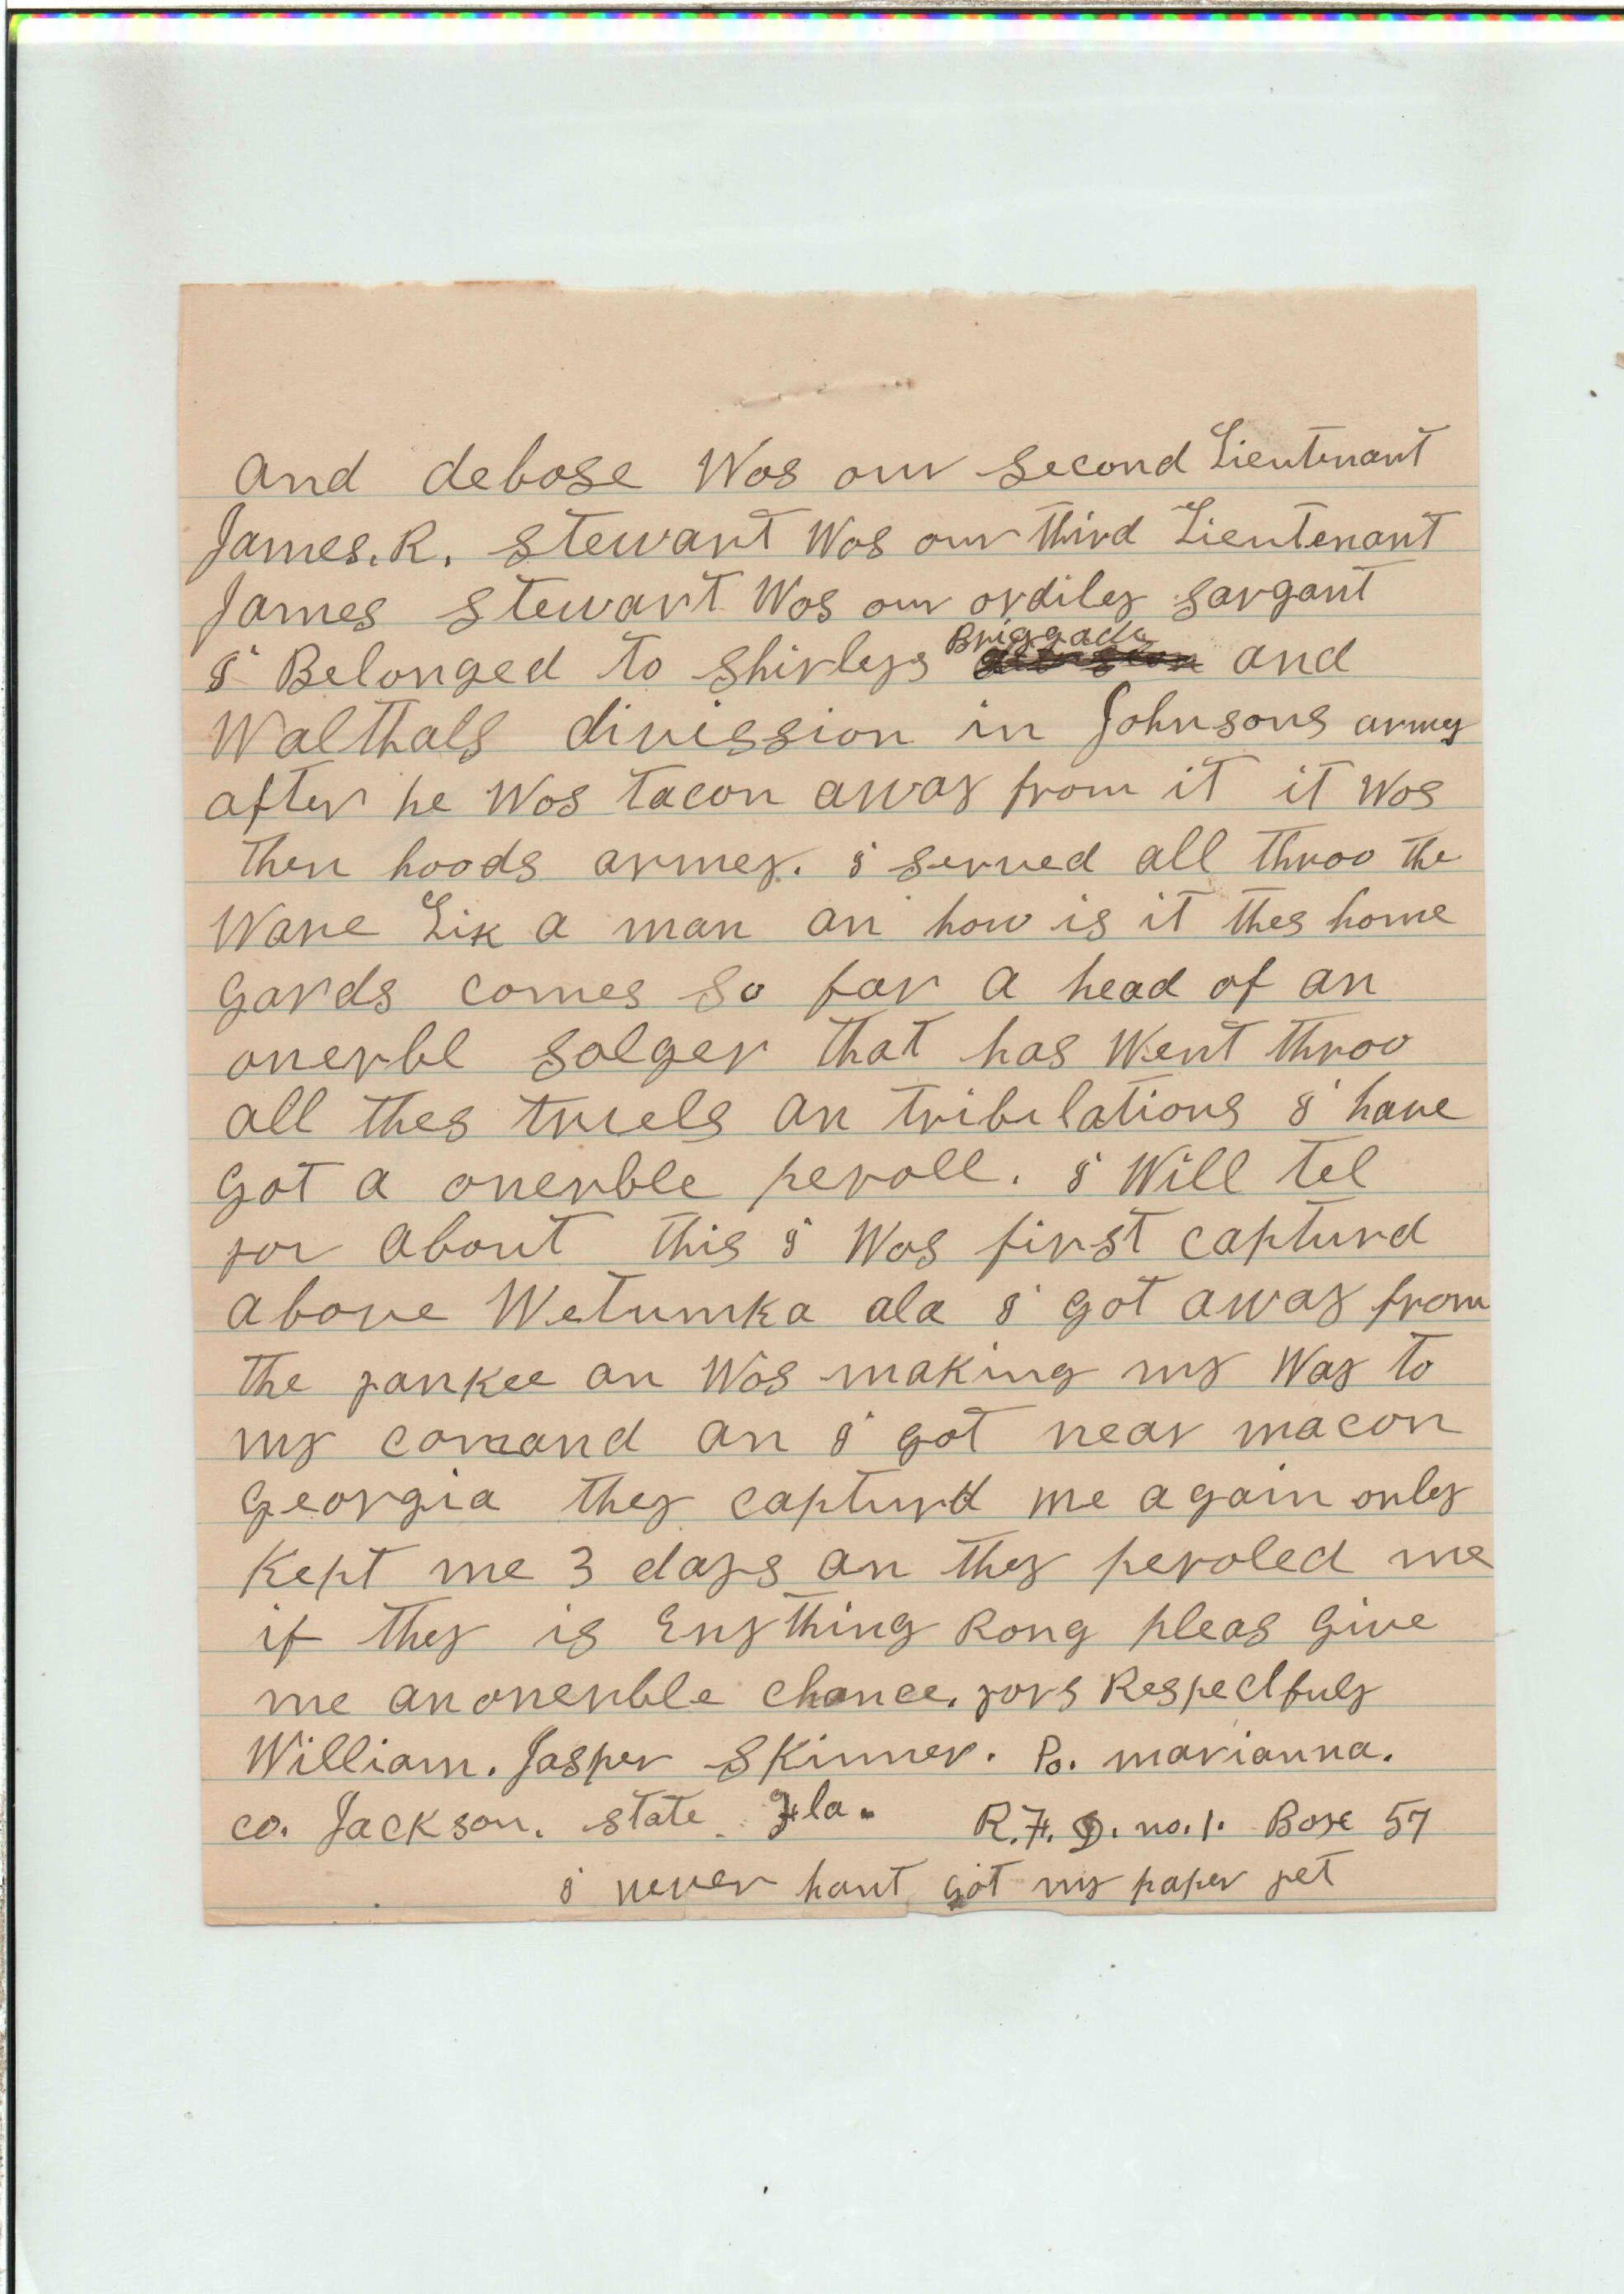 and debose Wos our second Lieutenant
James. R. stewart Wos our third Lieutenant
James stewart Wos our ordiley sargant
i Belonged to shirleys Briggade and
Walthals divission in Johnsons army
after he Wos tacon away from it it Wos
then hoods armey. i served all throo the
Ware Lik a man an how is it thes home
gards comes so far a head of an
onerbl solger that has Went throo
all thes truels an tribulations i have
got a onerble peroll. i Will tel
you about this i Wos first capturd
above Wetumka ala i got away from
the yankee an Wos making my Way to
my comand an i got near macon
georgia they capturd me again only
Kept me 3 days an they peroled me
if they is Enything Rong pleas give
me anonerble chance. yors Respectfuly
William. Jasper Skinner. Po. marianna.
co. Jackson. state Fla. R.F.D. no. 1. Boxe 57
i never hant got my paper yet